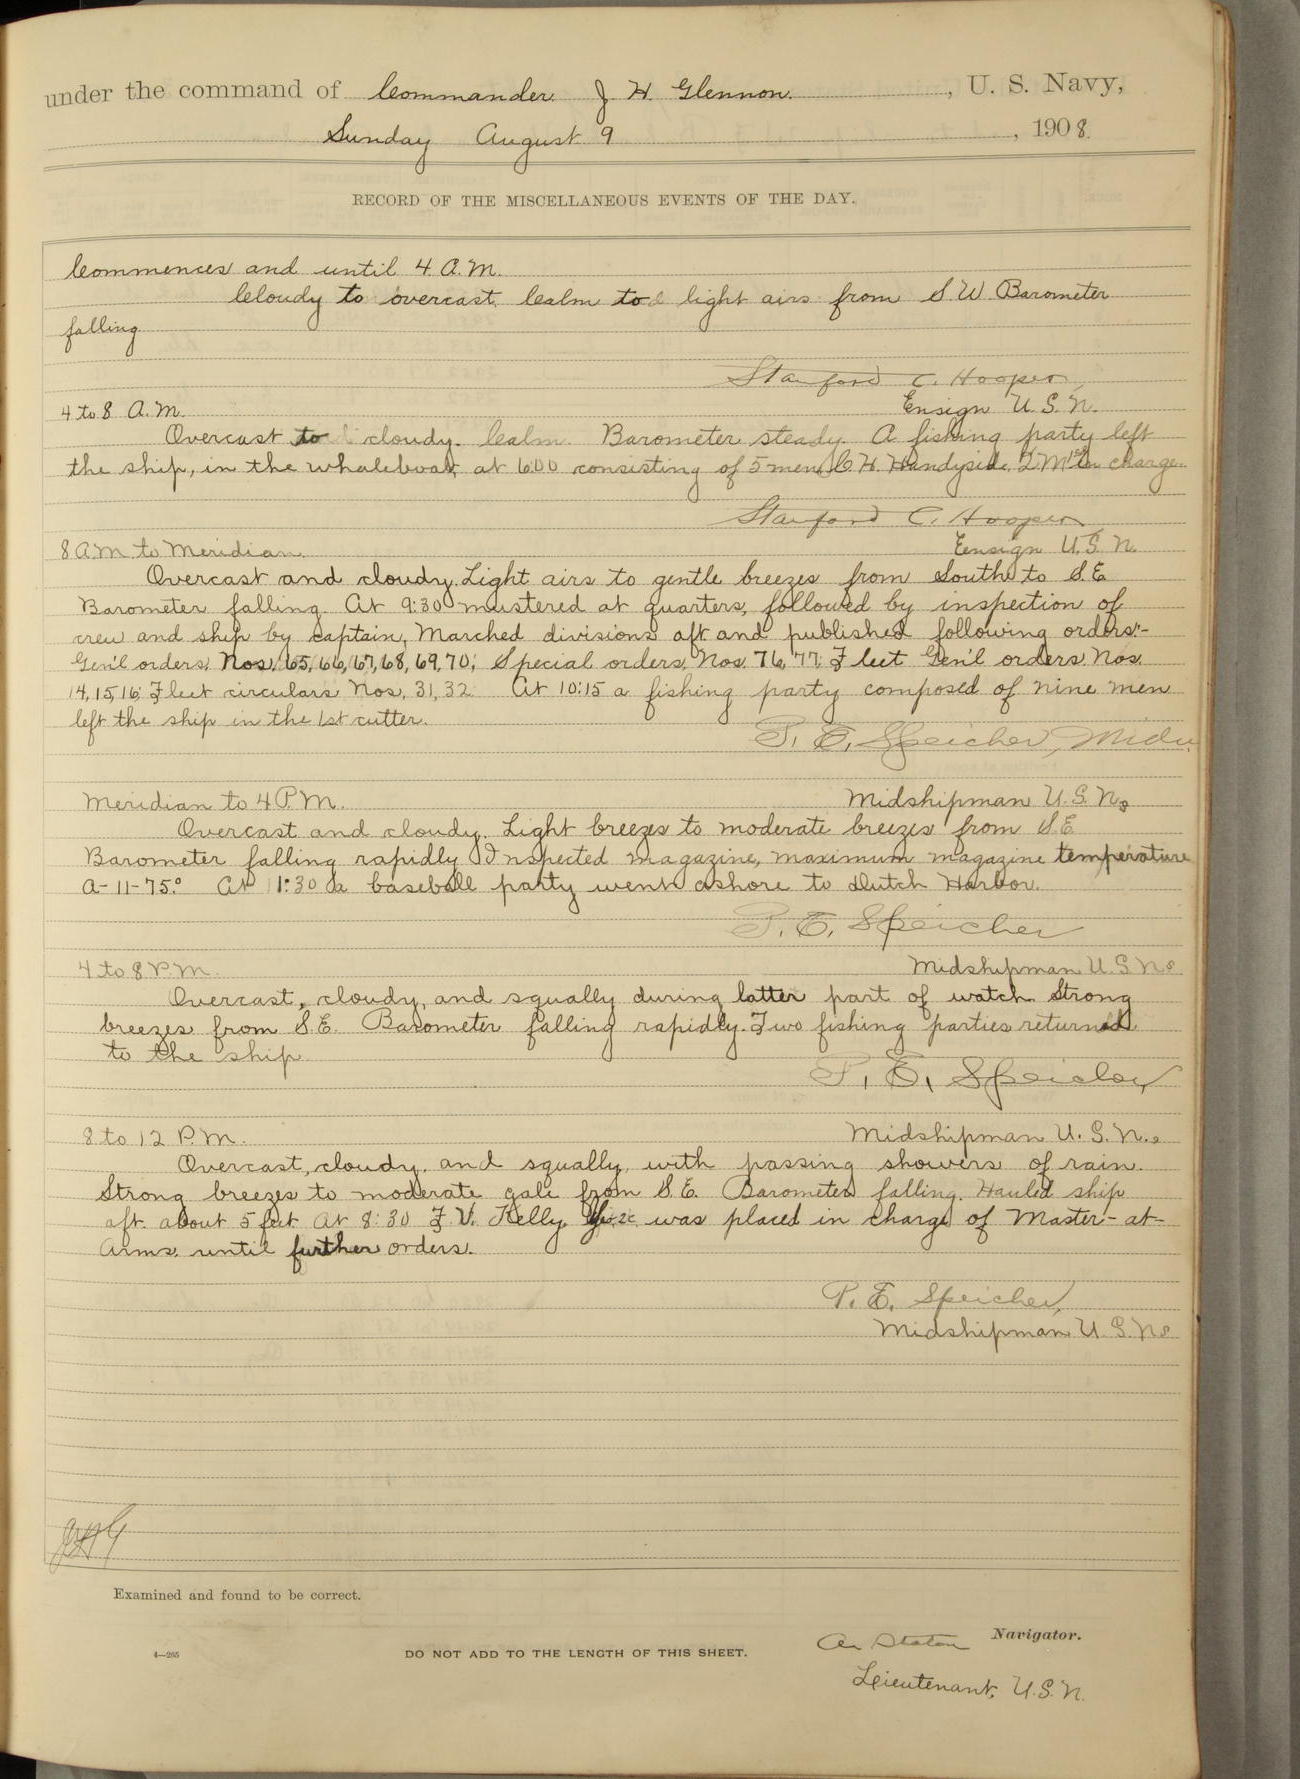 under the command of Commander J H. Glennon. , U. S. Navy,
Sunday August 9 , 1908.
RECORD OF THE MISCELLANEOUS EVENTS OF THE DAY.
Commences and until 4 A.M.
Cloudy to overcast. Calm to light airs from S W. Barometer
falling.
Stanford C. Hooper,
Ensign U.S.N.
4 to 8 A.M.
Overcast to cloudy. Calm. Barometer steady. A fishing party left
the ship, in the whaleboat, at 6:00 consisting of 5 men, C. H. Handyside, in charge.
Stanford C. Hooper
Eensign U.S.N.
8 A.M. to Meridian.
Overcast and cloudy. Light airs to gentle breezes from South to S.E.
Barometer falling. At 9:30 mustered at quarters, followed by inspection of
crew and ship by captain, Marched divisions aft and published following orders:-
Gen'l orders, Nos. 65, 66, 67, 68, 69, 70; Special orders, Nos. 76, 77; Fleet Gen'l orders, Nos.
14, 15, 16; Fleet circulars Nos, 31, 32. At 10:15 a fishing party composed of nine men
left the ship in the 1st cutter.
P. E. Speicher,
Midshipman U.S.N.
Meridian to 4 P.M.
Overcast and cloudy. Light breezes to moderate breezes from S.E.
Barometer falling rapidly. Inspected magazine, maximum magazine temperature
A-11-75.° At 1:30 a baseball party went ashore to Dutch Harbor.
P. E. Speicher
Midshipman U.S.N.
4 to 8 P.M.
Overcast, cloudy, and squally during latter part of watch. Strong
breezes from S.E. Barometer falling rapidly. Two fishing parties returned
to the ship.
P. E. Speicher
Midshipman U.S.N.
8 to 12 P.M.
Overcast, cloudy, and squally, with passing showers of rain.
Strong breezes to moderate gale from S.E. Barometer falling. Hauled ship
aft about 5 feet. At 8:30 F. V. Kelly was placed in charge of Master-at-
Arms, until further orders.
P. E. Speicher,
Midshipman U.S.N.
JHG
Examined and found to be correct.
Navigator.
4—265
DO NOT ADD TO THE LENGTH OF THIS SHEET.
Leieutenant, U.S.N.